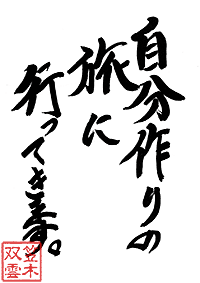 自分作りの
旅に
行ってきます。
笠木
双雲